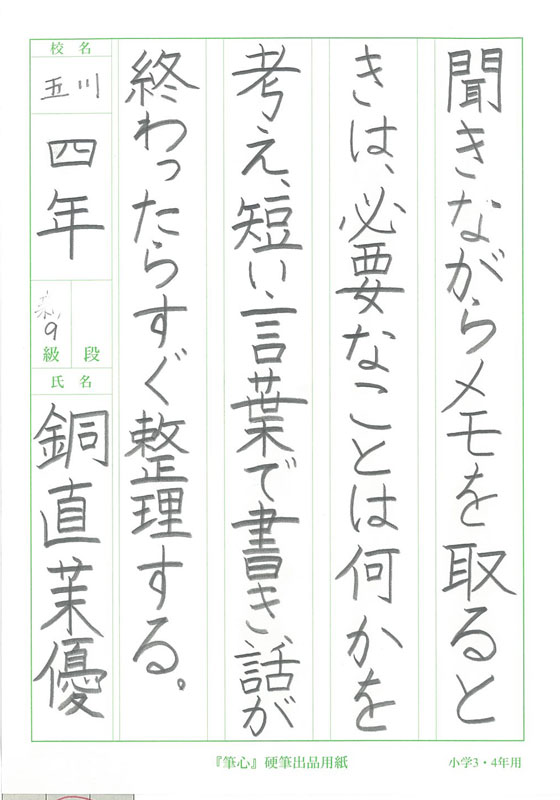 聞きながらメモを取ると
きは、必要なことは何かを
考え、短い言葉で書き、話が
終わったらすぐ整理する。
校名
五川
四年
段
級
9
氏名
銅直茉優
『筆心』硬筆出品用紙
小学3・4年用